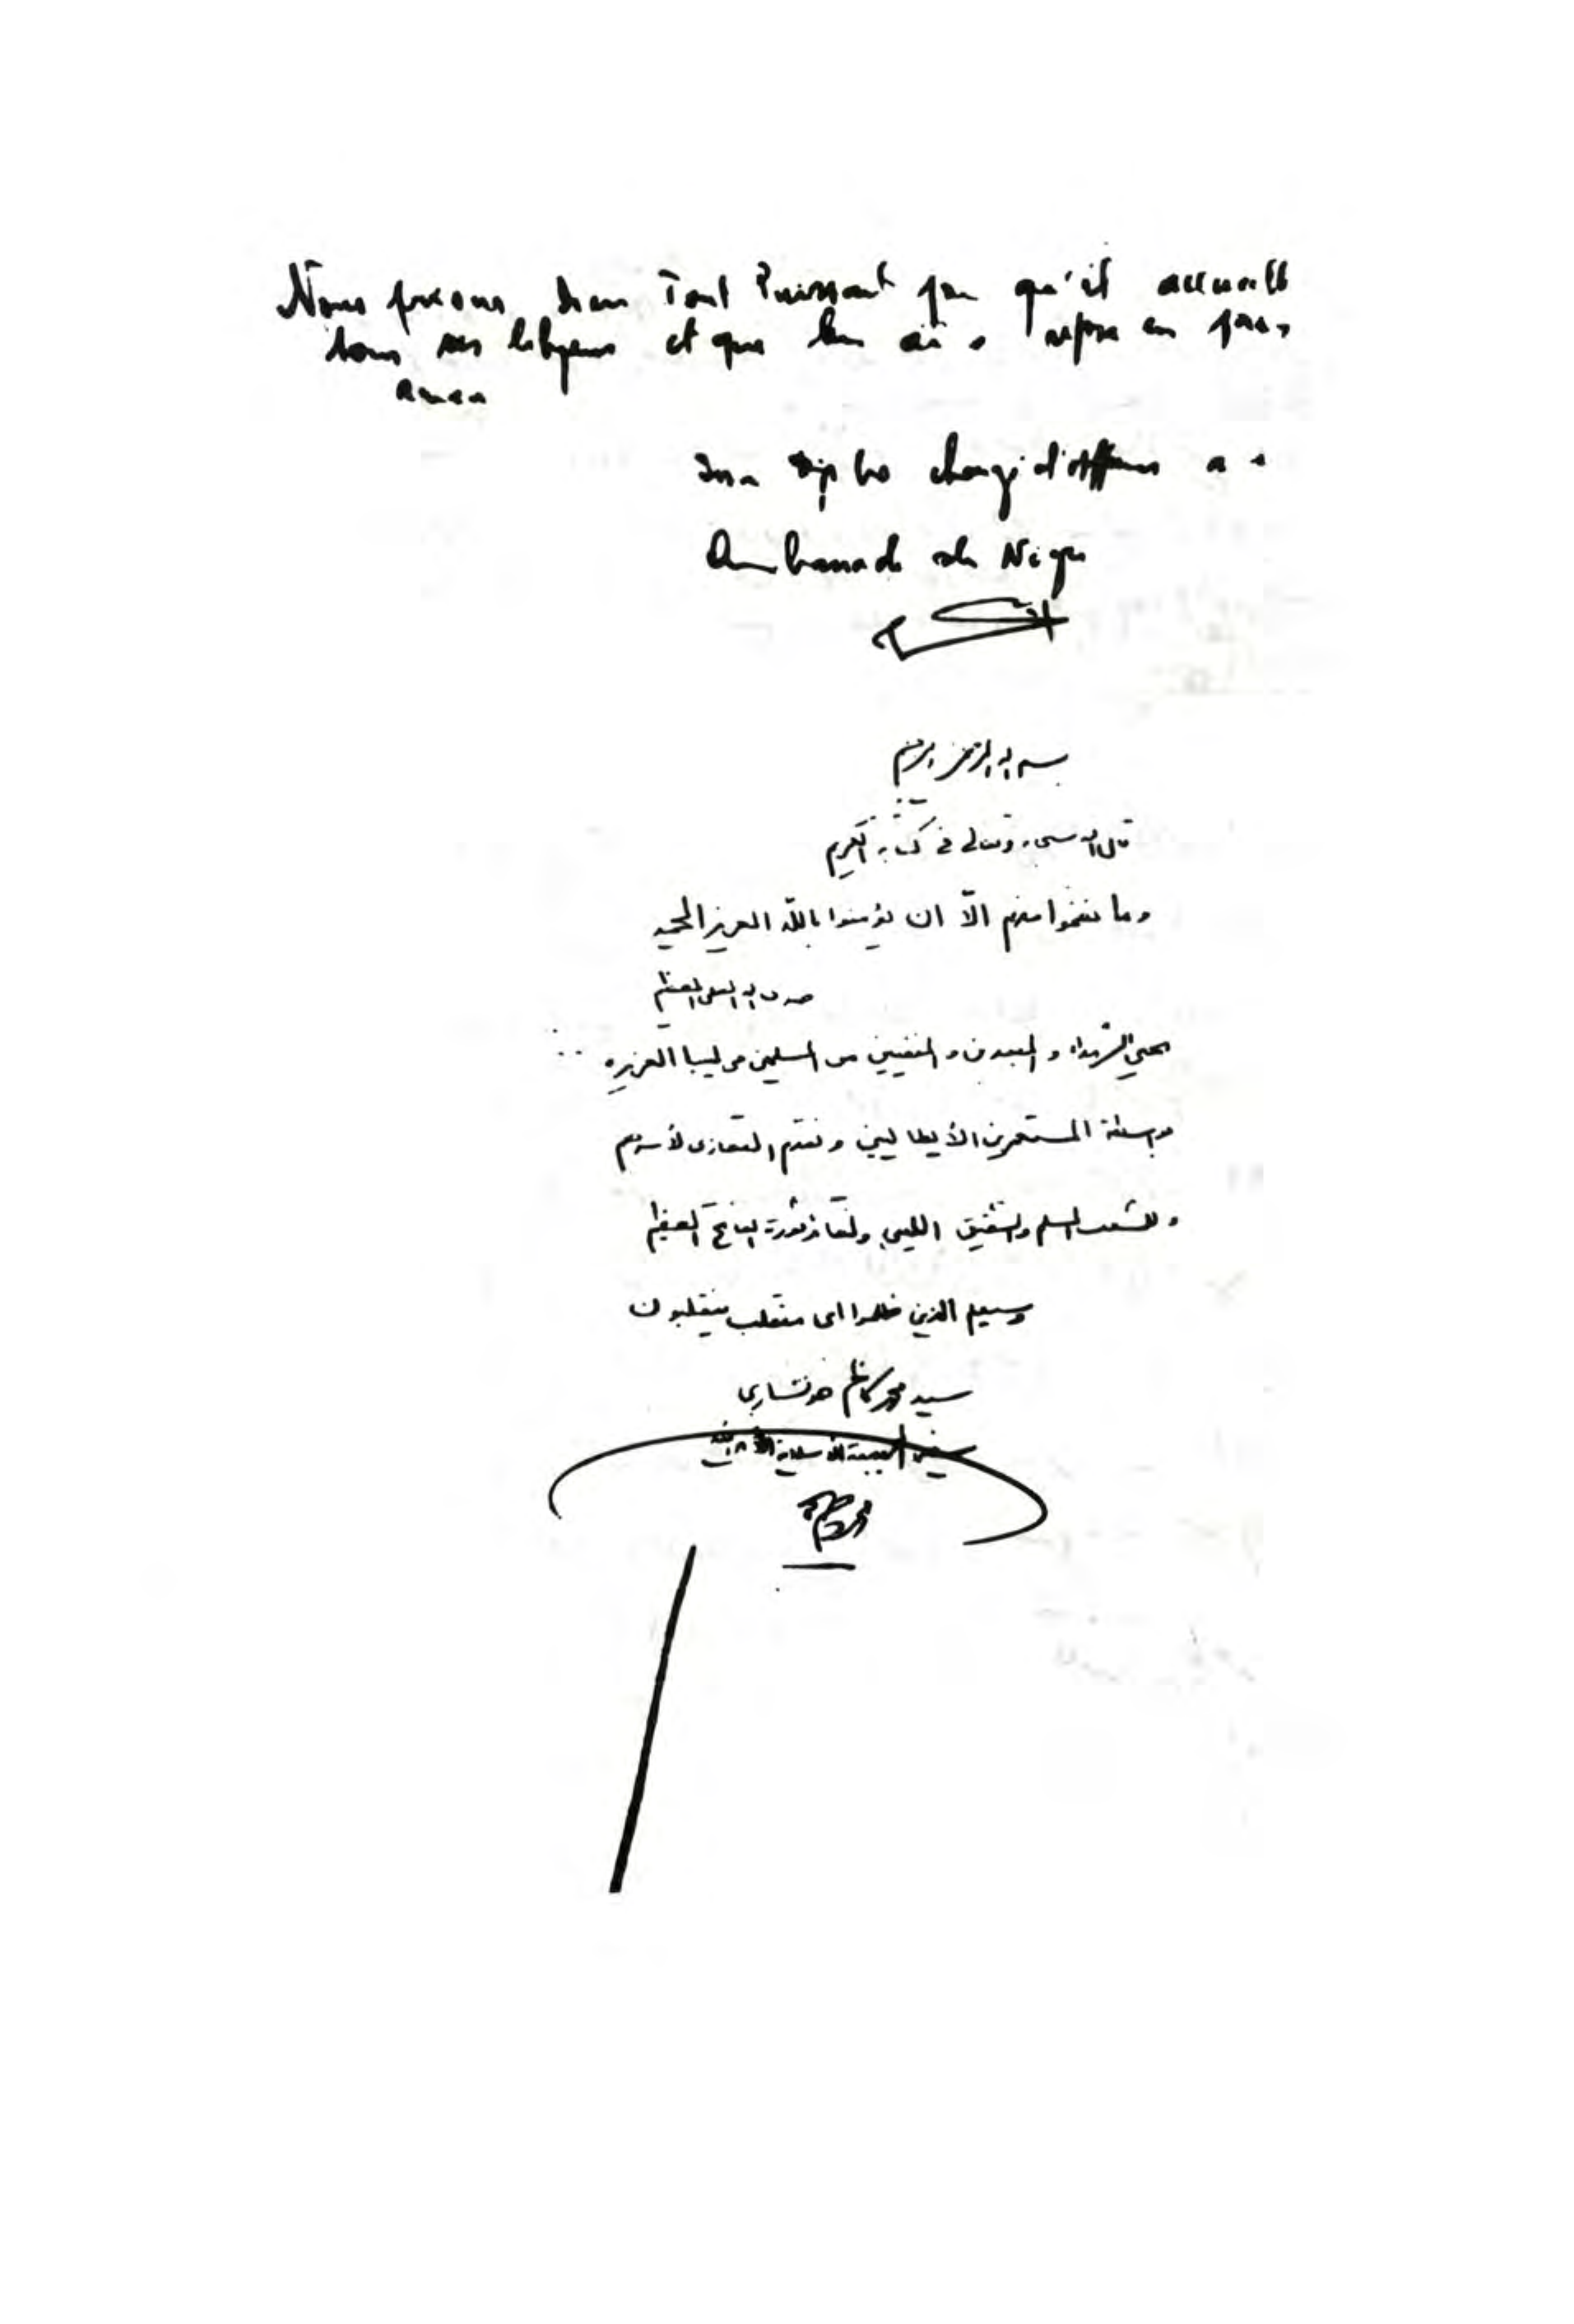 Nous prions Dieu Tout Puissant pour qu'il accueille
tous ses libyens et que leur repose en paix,
amen
chargé d'Affaires a i
Ambassade du Niger
بسم الله الرحمن الرحيم
قال الله سبحانه وتعالى في كتابه الكريم
وما نقموا منهم الاّ ان يؤمنوا باللّه العزيز الحميد
صدق الله العلي العظيم
الشهداء و المبعدين و المنفيين من المسلمين من ليبيا العزيزه
بواسطة المستعمرين الأيطاليين و نقدم التعازى لأسرهم
و للشعب المسلم والشقيق الليبي ولقائد ثورة الفاتح العظيم
وسيعلم الذين ظلموا اى منقلب ينقلبون
سيد محمد كاظم خونساري
سفير الجمهورية الأسلامية الأيرانية